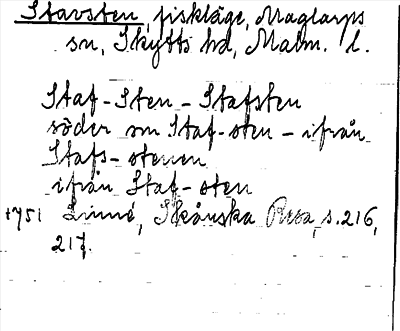 Stavsten, fiskläge, Maglarps
sn, Skytts hd, Malm. l.
Staf-Sten - Stafsten
söder om Staf-sten - ifrån
Stafs-stenen
ifrån Staf-sten
1751 Linné, Skånska Resa, s. 216,
217.